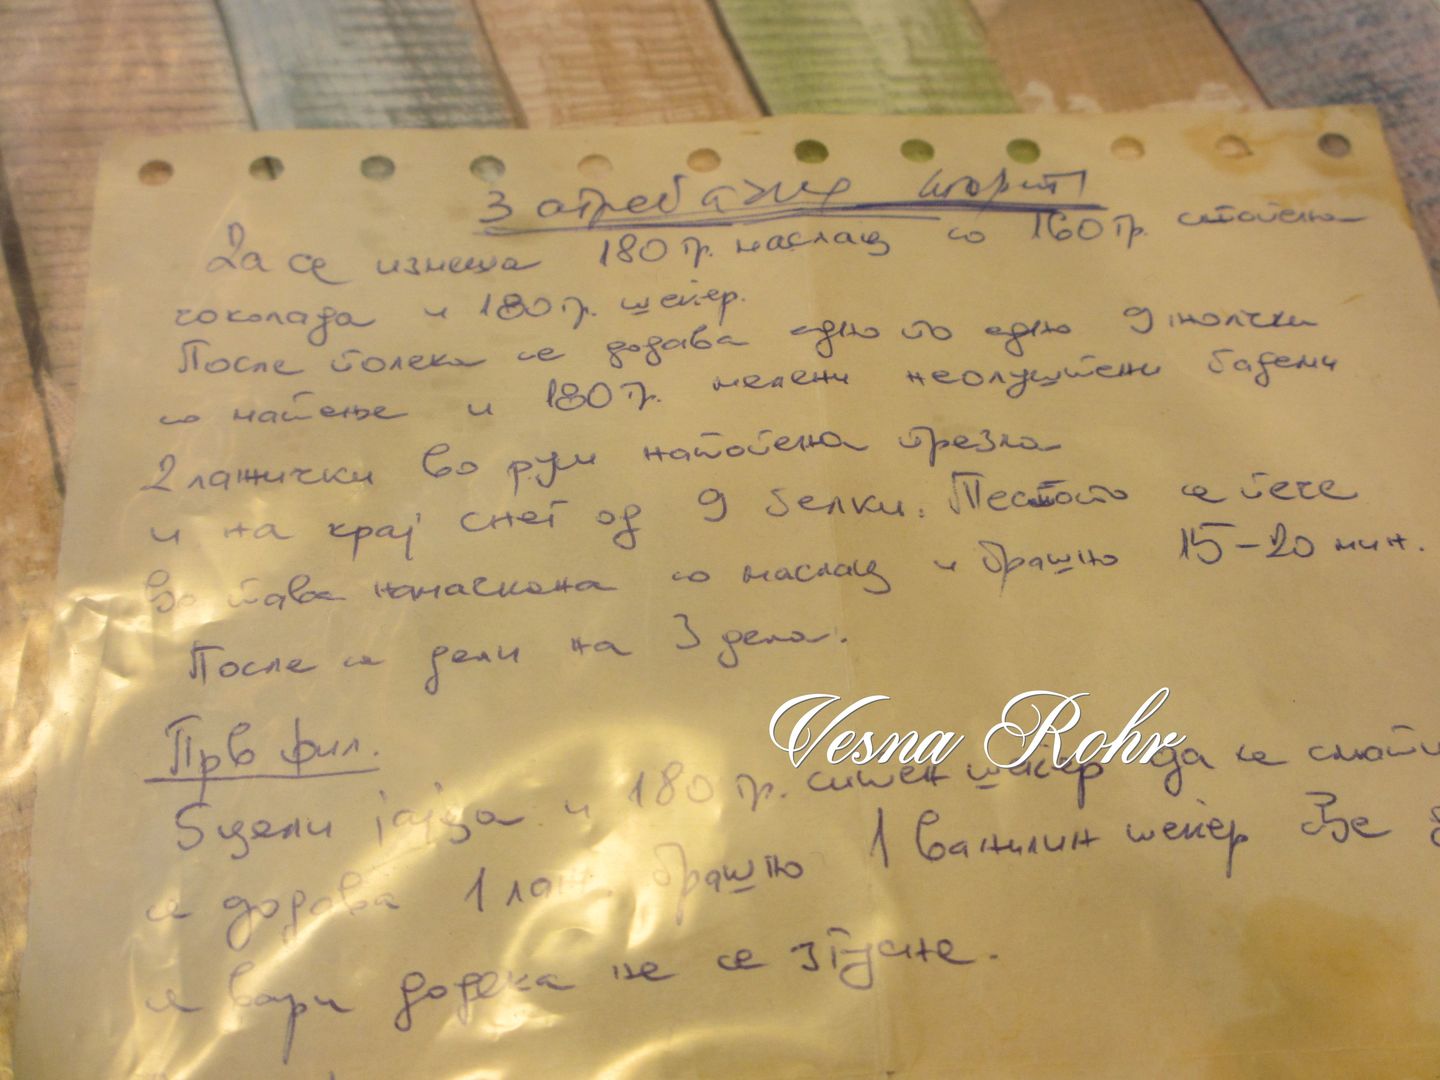 Загребачка торта
Да се измеша 180 гр. маслац со 160 гр. стопена
чоколада и 180 гр. шеќер.
После полека се додава едно по едно 9 жолчки
со матење и 180 гр. мелени неолуштени бадеми
2 лажички во рум натопена презла
и на крај снег од 9 белки. Тестото се пече
во тава намачкана со маслац и брашно 15-20 мин.
После се дели на 3 дела.
Vesna Rohr
Прв фил.
5 цели јајца и 180 гр. ситен шеќер да се
се додава 1 лаж. брашно 1 ванилин шеќер
се вари додека не се згусне.